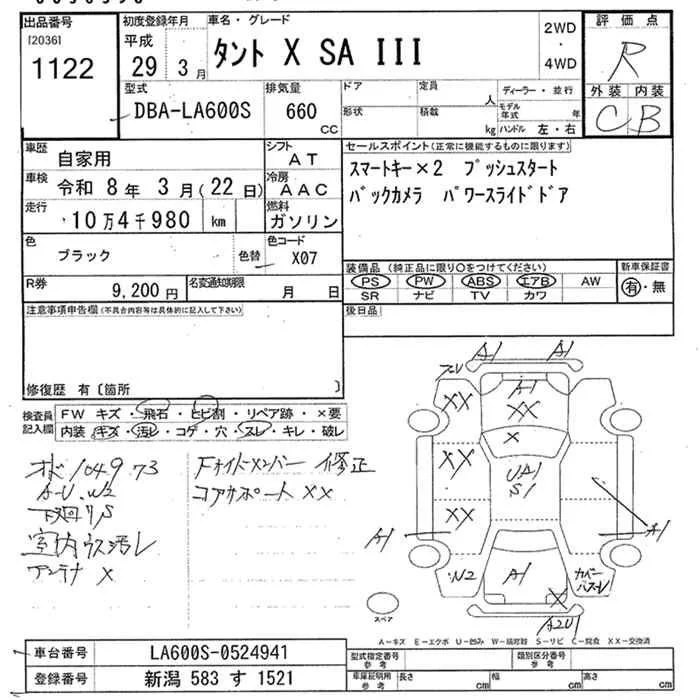 出品番号
[2036]
1122
初度登録年月
平成
29 3月
車名・グレード
タント X SA III
2WD
・
4WD
評価点
R
外装 内装
C B
型式
DBA-LA600S
排気量
660
CC
ドア
定員
人
形状
積載
kg
ディーラー・並行
モデル年式 年
ハンドル 左・右
車歴
自家用
シフト
AT
車検
令和 8年 3月(22日)
冷房
AAC
走行
10万4千980 km
燃料
ガソリン
色
ブラック
色替
色コード
X07
R券
9,200円
名変通知期限
月 日
セールスポイント(正常に機能するものに限ります)
スマートキー×2 プッシュスタート
バックカメラ パワースライドドア
装備品 (純正品に限り○をつけてください)
PS PW ABS エアB AW
SR ナビ TV カワ
新車保証書
有・無
後日品
注意事項申告欄(不具合内容等は具体的に記入して下さい)
修復歴 有〔箇所 〕
検査員
記入欄
FW キズ・飛石・ヒビ割・リペア跡・×要
内装 キズ・汚レ・コゲ・穴・スレ・キレ・破レ
104973
A-U.W2
下廻りS
室内ウス汚レ
アンテナ X
Fサイドメンバー 修正
コアサポート XX
A1
A1
A1
XX
XX
X
XX
UA1
S1
XX
A1
A1
W2
A1
カバー
ハズレ
X
A2U1
スペア
A-キズ E-エクボ U-凹み W-補修跡 S-サビ C-腐食 XX-交換済
車台番号
LA600S-0524941
登録番号
新潟 583 す 1521
型式指定番号
参考
類別区分番号
参考
車庫証明用
参考
長さ cm
幅 cm
高さ cm